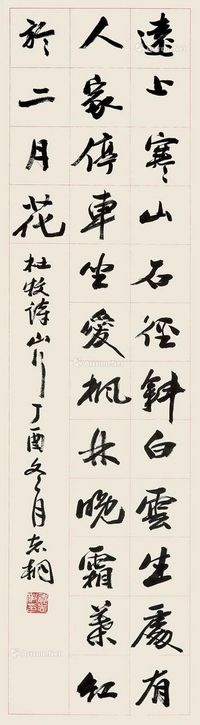 遠上寒山石徑斜白雲生處有
人家停車坐愛楓林晚霜葉紅
於二月花
杜牧詩山行丁酉冬月